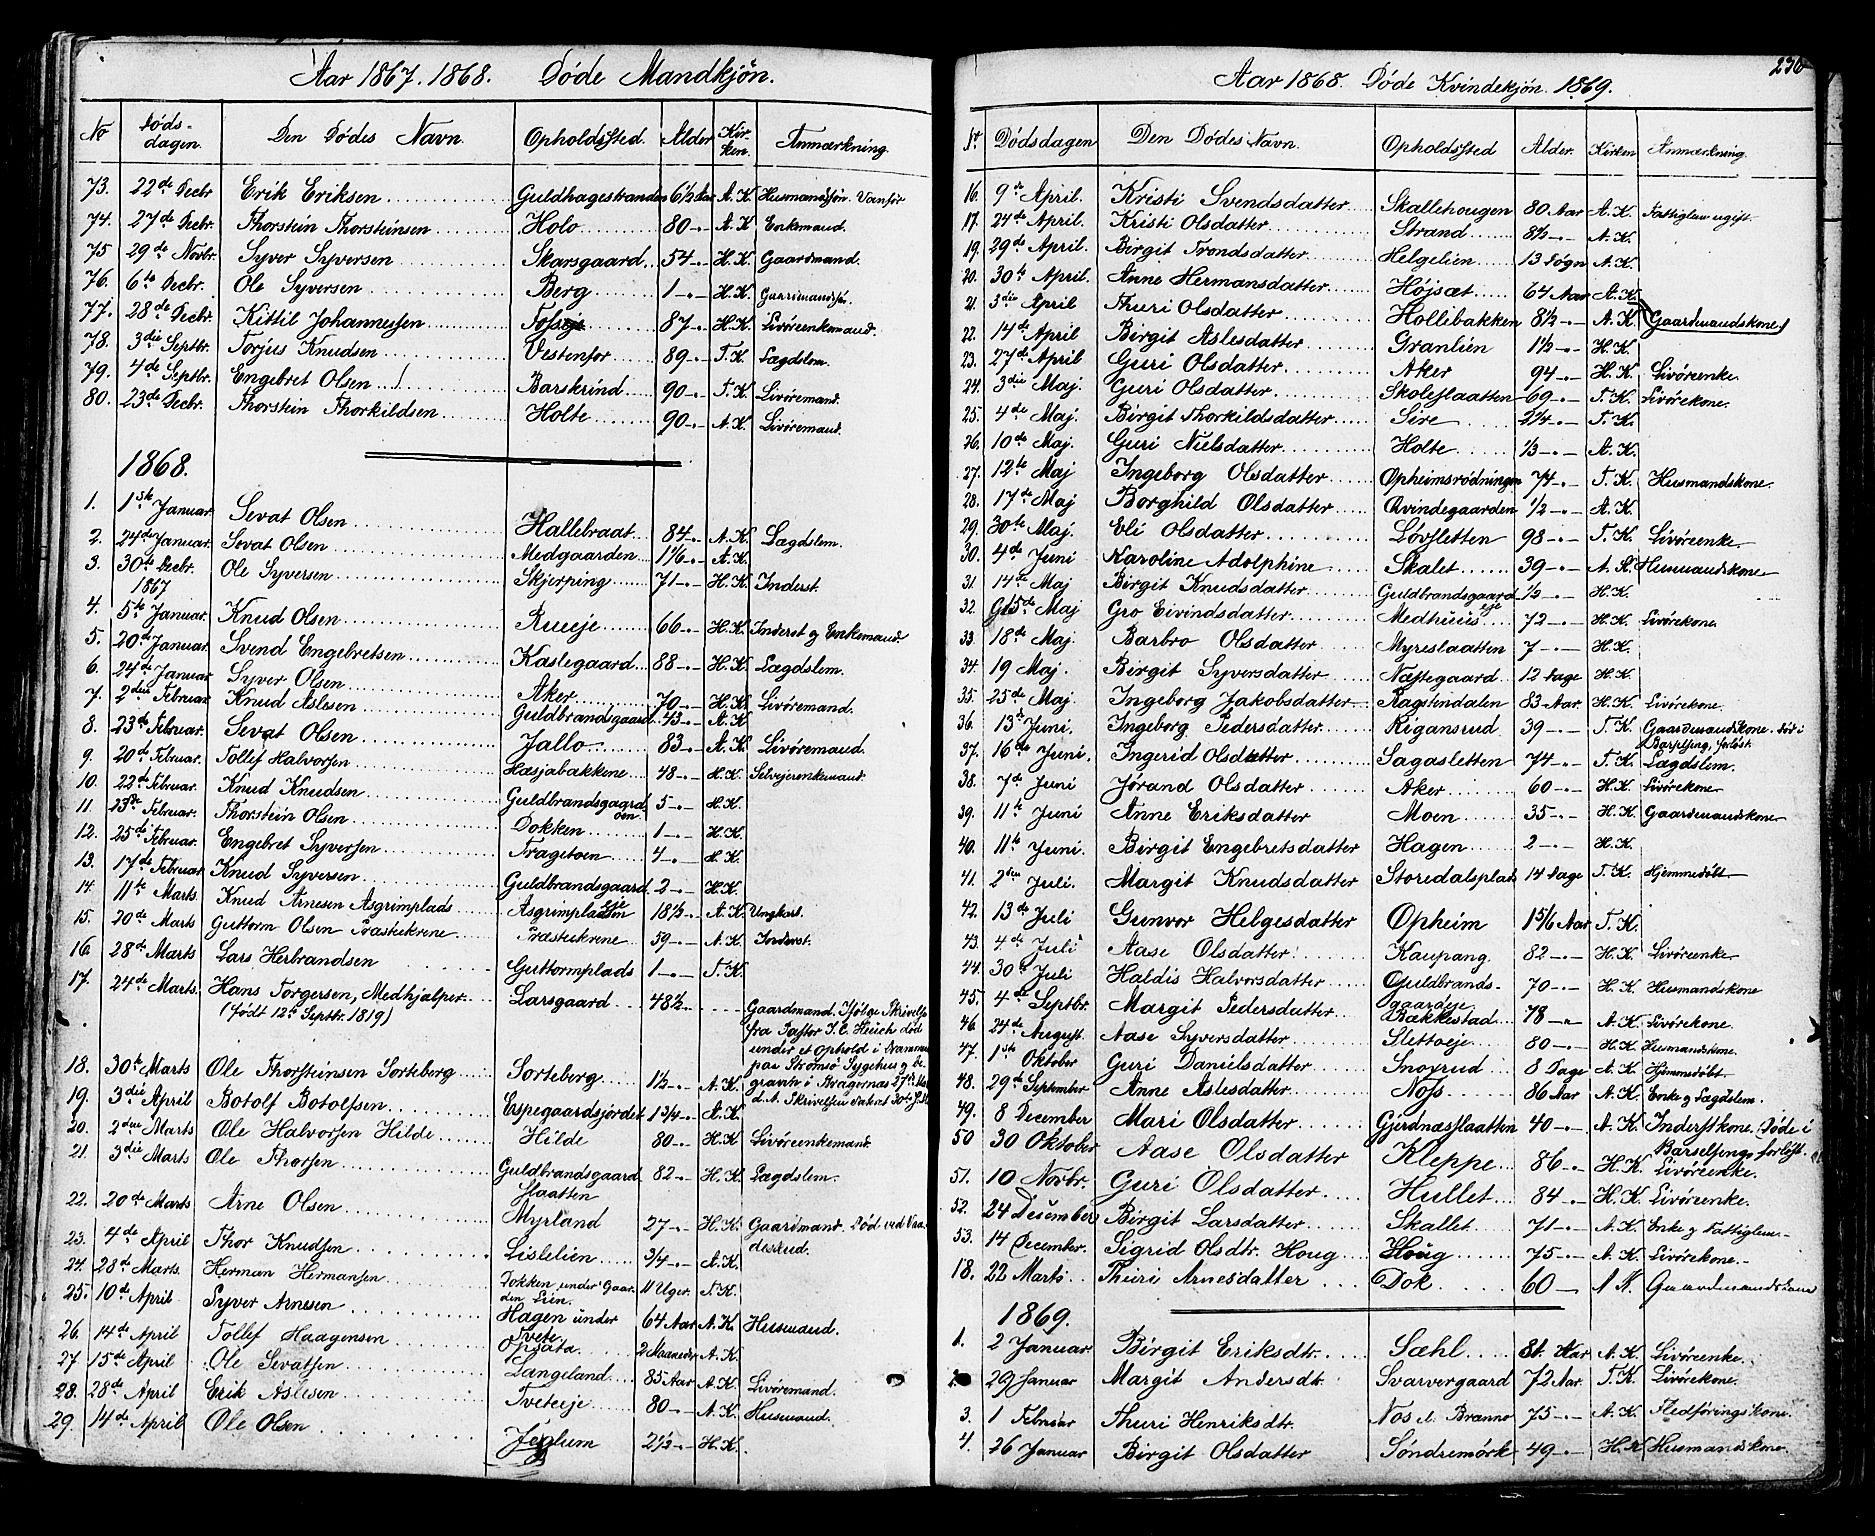 Aar 1867. 1868. Døde Mandkjøn.
No Døds-dagen. Den Dødes Navn. Opholdssted. Alder Kir-ken. Anmærkning.
73. 22de Decbr Erik Eriksen Guldhagestranden 6½ Aar A. K Husmandssøn Vanfør
74. 27de Decbr. Thorstein Thorsteinsen Holo 80 -"- A K Enkemand.
75 29de Novbr. Syver Syversen Skarsgaard 54 -"- H. K Gaardmand.
76. 6te Decbr. Ole Syversen Berg 1 -"- H. K Gaardmandssøn.
77. 28de Decbr. Kittil Johannessen 87 -"- H. K Livøreenkemand.
78. 3die Septbr. Torjus Knudsen Vestenfor 89 -"- T. K Lægdslem.
79. 4de Septbr. Engebret Olsen Barskrind 90 -"- T. K Livøremand.
80. 23de Decbr. Thorstein Thorkildsen Holte 90 -"- A K Livøremand.
1868.
1. 1ste Januar Sevat Olsen Hallebraat 84 -"- A. K. Lægdslem.
2. 24de Januar. Sevat Olsen Medgaarden 1 1/6 -"- A. K.
3. 30te Decbr. 1867 Ole Syversen Skjerping 71 -"- H. K Inderst.
4. 5te Januar. Knud Olsen Rueeje 66 -"- H. K Inderst og Enkemand
5. 20de Januar. Svend Engebretsen Kaslegaard 88 -"- H. K Lægdslem.
6. 24de Januar Syver Olsen Aker 70 -"- H. K Livøremand.
7. 2den Februar Knud Aslesen Guldbrandsgaard 43 -"- A. K
8. 23de Februar. Sevat Olsen Jallo 83 -"- A. K Livøremand.
9. 20de Februar. Tollef Halvorsen Hæsjabakkene 48 -"- H. K Selvejerenkemand.
10. 22de Februar. Knud Knudsen Guldbrandsgaard 5 -"- H. K.
11. 23de Februar. Thorstein Olsen Dokken 1 -"- H. K
12. 25de Februar. Engebret Syversen Trageteen 4 -"- H K.
13. 17de Februar Knud Syversen Guldbrandsgaard 2 -"- H. K.
14. 11te Marts Knud Arnesen Asgrimplads Asgrimpladsen eje 18½ -"- A. K Ungkarl.
15. 20de Marts Guttorm Olsen Præstækrene Præstækrene 59 -"- A. K Inderst.
16. 28de Marts Lars Herbrandsen Guttormplads 1 -"- T. K
17. 24de Marts. Hans Torgersen, Medhjælper Larsgaard 48½ Gaardmand. Ifølge Skrivelse
(født 12te Septbr. 1819) fra Pastor J. C. Heuch død
under et ophold i Drammen
paa Strømsø Sygehus og be-
gravet i Bragernes 27de Ma
18. 30te Marts Ole Thorsteinsen Sorteberg Sorteberg 1½ -"- A. K
19. 3die April Botolf Botolfsen Espegaardsjordet 1 3/4 -"- A. K
20. 2den Marts Ole Halvorsen Hilde Hilde 80 -"- H. K Livøreenkemand
21. 3die Marts Ole Thorsen Guldbrandsgaard Slaatten 82 -"- H. K Lægdslem.
22. 20de Marts Arne Olsen Myrland 27 -"- H. K Gaardmand. Død ved Vaa-
23. 4de April Thor Knudsen Lislelien 3/4 -"- A. K. deskud.
24. 28de Marts. Herman Hermansen Dokken under Gaarden Lien. 11 Uger. T. K.
25. 10de April Syver Arnesen Hagen under Tveto 64 Aar A. K Husmand.
26. 14de April Tollef Haagensen Opsata 2 Maaneder A. K
27 15de April Ole Sevatsen Langeland 85 Aar A. K Livøremand.
28. 28de April Erik Aslesen Tveteeje 80 -"- A. K Husmand.
29. 14de April Ole Olsen Jeglum 2½ -"- H. K.
236
Aar 1868. Døde Kvindekjøn. 1869.
Nr. Dødsdagen Den Dødes Navn. Opholdssted Alder. Kirken Anmærkning.
16. 9de April. Kristi Svendsdatter Skallehougen 80 Aar A. K Fattiglem ugift.
17. 24de April. Kristi Olsdatter Strand 8½ -"- A. K
19. 29de April. Birgit Trondsdatter Helgelien 13 Døgn A. K
20. 30te April. Anne Hermansdatter Højsæt 64 Aar A. K
21. 3die April Thuri Olsdatter Hollebakken 8½ -"- A. K Gaardmandskone
22. 14de April Birgit Aslesdatter Granlien 1½ -"- H. K
23. 27de April Guri Olsdatter Aker 94 -"- H. K Livøreenke.
24. 3die Maj Guri Olsdatter Skoleslaatten 69 -"- T. K Livørekone.
25. 4de Maj. Birgit Thorkildsdatter Sire 2¼ -"- T. K
26. 10de Maj. Guri Nielsdatter Holte 1/3 -"- A. K
27. 12te Maj Ingeborg Olsdatter Opheimsrødningen 74 -"- T. K Husmandskone.
28. 17de Maj Borghild Olsdatter Qvindegaarden ½ -"- A. K.
29. 30te Maj. Eli Olsdatter Løvsletten 98 -"- T. K Livøreenke
30. 4de Juni Karoline Adolphine Skalet 39 -"- A. K Husmandskone
31 14de Maj Birgit Knudsdatter Guldbrandsgaard eje ½ -"- H. K
32. 15de Maj Gro Eivindsdatter Medhuus 72 -"- H. K Livørekone.
33. 18de Maj. Barbro Olsdatter Myreslaatten 7 -"- H. K.
34. 19 Maj. Birgit Syversdatter Næstegaard 12 Dage H. K
35. 25de Maj Ingeborg Jakobsdatter Ragstendalen 83 Aar H. K Livørekone.
36. 13de Juni. Ingeborg Pedersdatter Rigansrud 39 -"- T. K Gaardmandskone. død i
Barselseng, forløst.
37. 16de Juni. Ingerid Olsdatter Sagasletten 74 -"- T. K Lægdslem.
38. 7de Juni Jørand Olsdatter Aker 60 -"- H. K Livørekone
39. 11te Juni Anne Eriksdatter Moen 35 -"- H. K Gaardmandskone
40. 11te Juni. Birgit Engebretsdatter Hagen 2 -"- H. K
41. 2den Juli. Margit Knudsdatter Storedalsplads 14 Dage T. K Hjemmedøbt
42. 13de Juli Gunvor Helgesdatter Opheim 1 5/6 Aar T. K.
43. 4de Juli Aase Olsdatter Kaupang 82 -"- H. K Livøreenke
44. 30te Juli Haldis Halvorsdatter Guldbrands-gaardeje 70 -"- H. K Husmandskone
45. 4de Septbr. Margit Pedersdatter Bækkestad 78 -"- A. K Livørekone.
46. 24de August. Aase Syversdatter Slettoeje 80 -"- H. K Husmandskone.
47. 1ste Oktober Guri Danielsdatter Snoyrud 8 Dage A. K Hjemmedøbt.
48. 29de September Anne Aslesdatter Noss 86 Aar A. K Enke og Lægdslem.
49. 8 December Mari Olsdatter Gjerdnæsslaatten 40 -"- A. K Inderstkone. Døde i
Barselseng forløst.
50 30 Oktober Aase Olsdatter Kleppe 86 -"- H. K Livøreenke.
51. 10 Novbr. Guri Olsdatter Hullet 84 -"- H. K Livøreenke.
52. 24 December Birgit Larsdatter Skallet 71 -"- A. K Enke og Fattiglem
53. 14 December. Sigrid Olsdtr. Houg Houg 75 -"- A. K Livørekone.
18. 22 Marts Thuri Arnesdatter Dok 60 A K Gaardmandskone
1869.
1. 2 Januar Birgit Eriksdtr. Sæhl 81 Aar A. K Livøreenke.
2. 29 Januar Margit Andersdtr. Svarvergaard 72 Aar. T. K Livørekone.
3. 1 Februar Thuri Henriksdtr. Nos 75 -"- A. K Fledføringskone.
4. 26 Januar Birgit Olsdatter Søndremørk 49 -"- H. K Husmandskone.